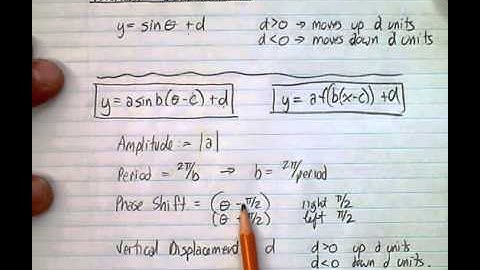 y = sin θ + d d>0 → moves up d units
d<0 → moves down d units.
y = a sin b(θ-c) + d y = a f(b(x-c)) + d
Amplitude := |a|
Period = 2π/b → b = 2π/period
Phase Shift = (θ - π/2) right π/2
(θ + π/2) left π/2
Vertical Displacement d d>0 up d units
d<0 down d units.